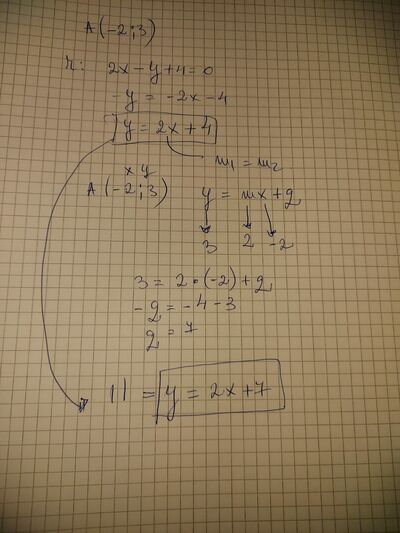 A(-2;3)
r: 2x-y+4=0
-y = -2x-4
y = 2x+4
m₁ = m₂
x y
A(-2;3)
y = mx+q
3 2 -2
3 = 2·(-2)+q
-q = -4-3
q = 7
|| = y = 2x+7